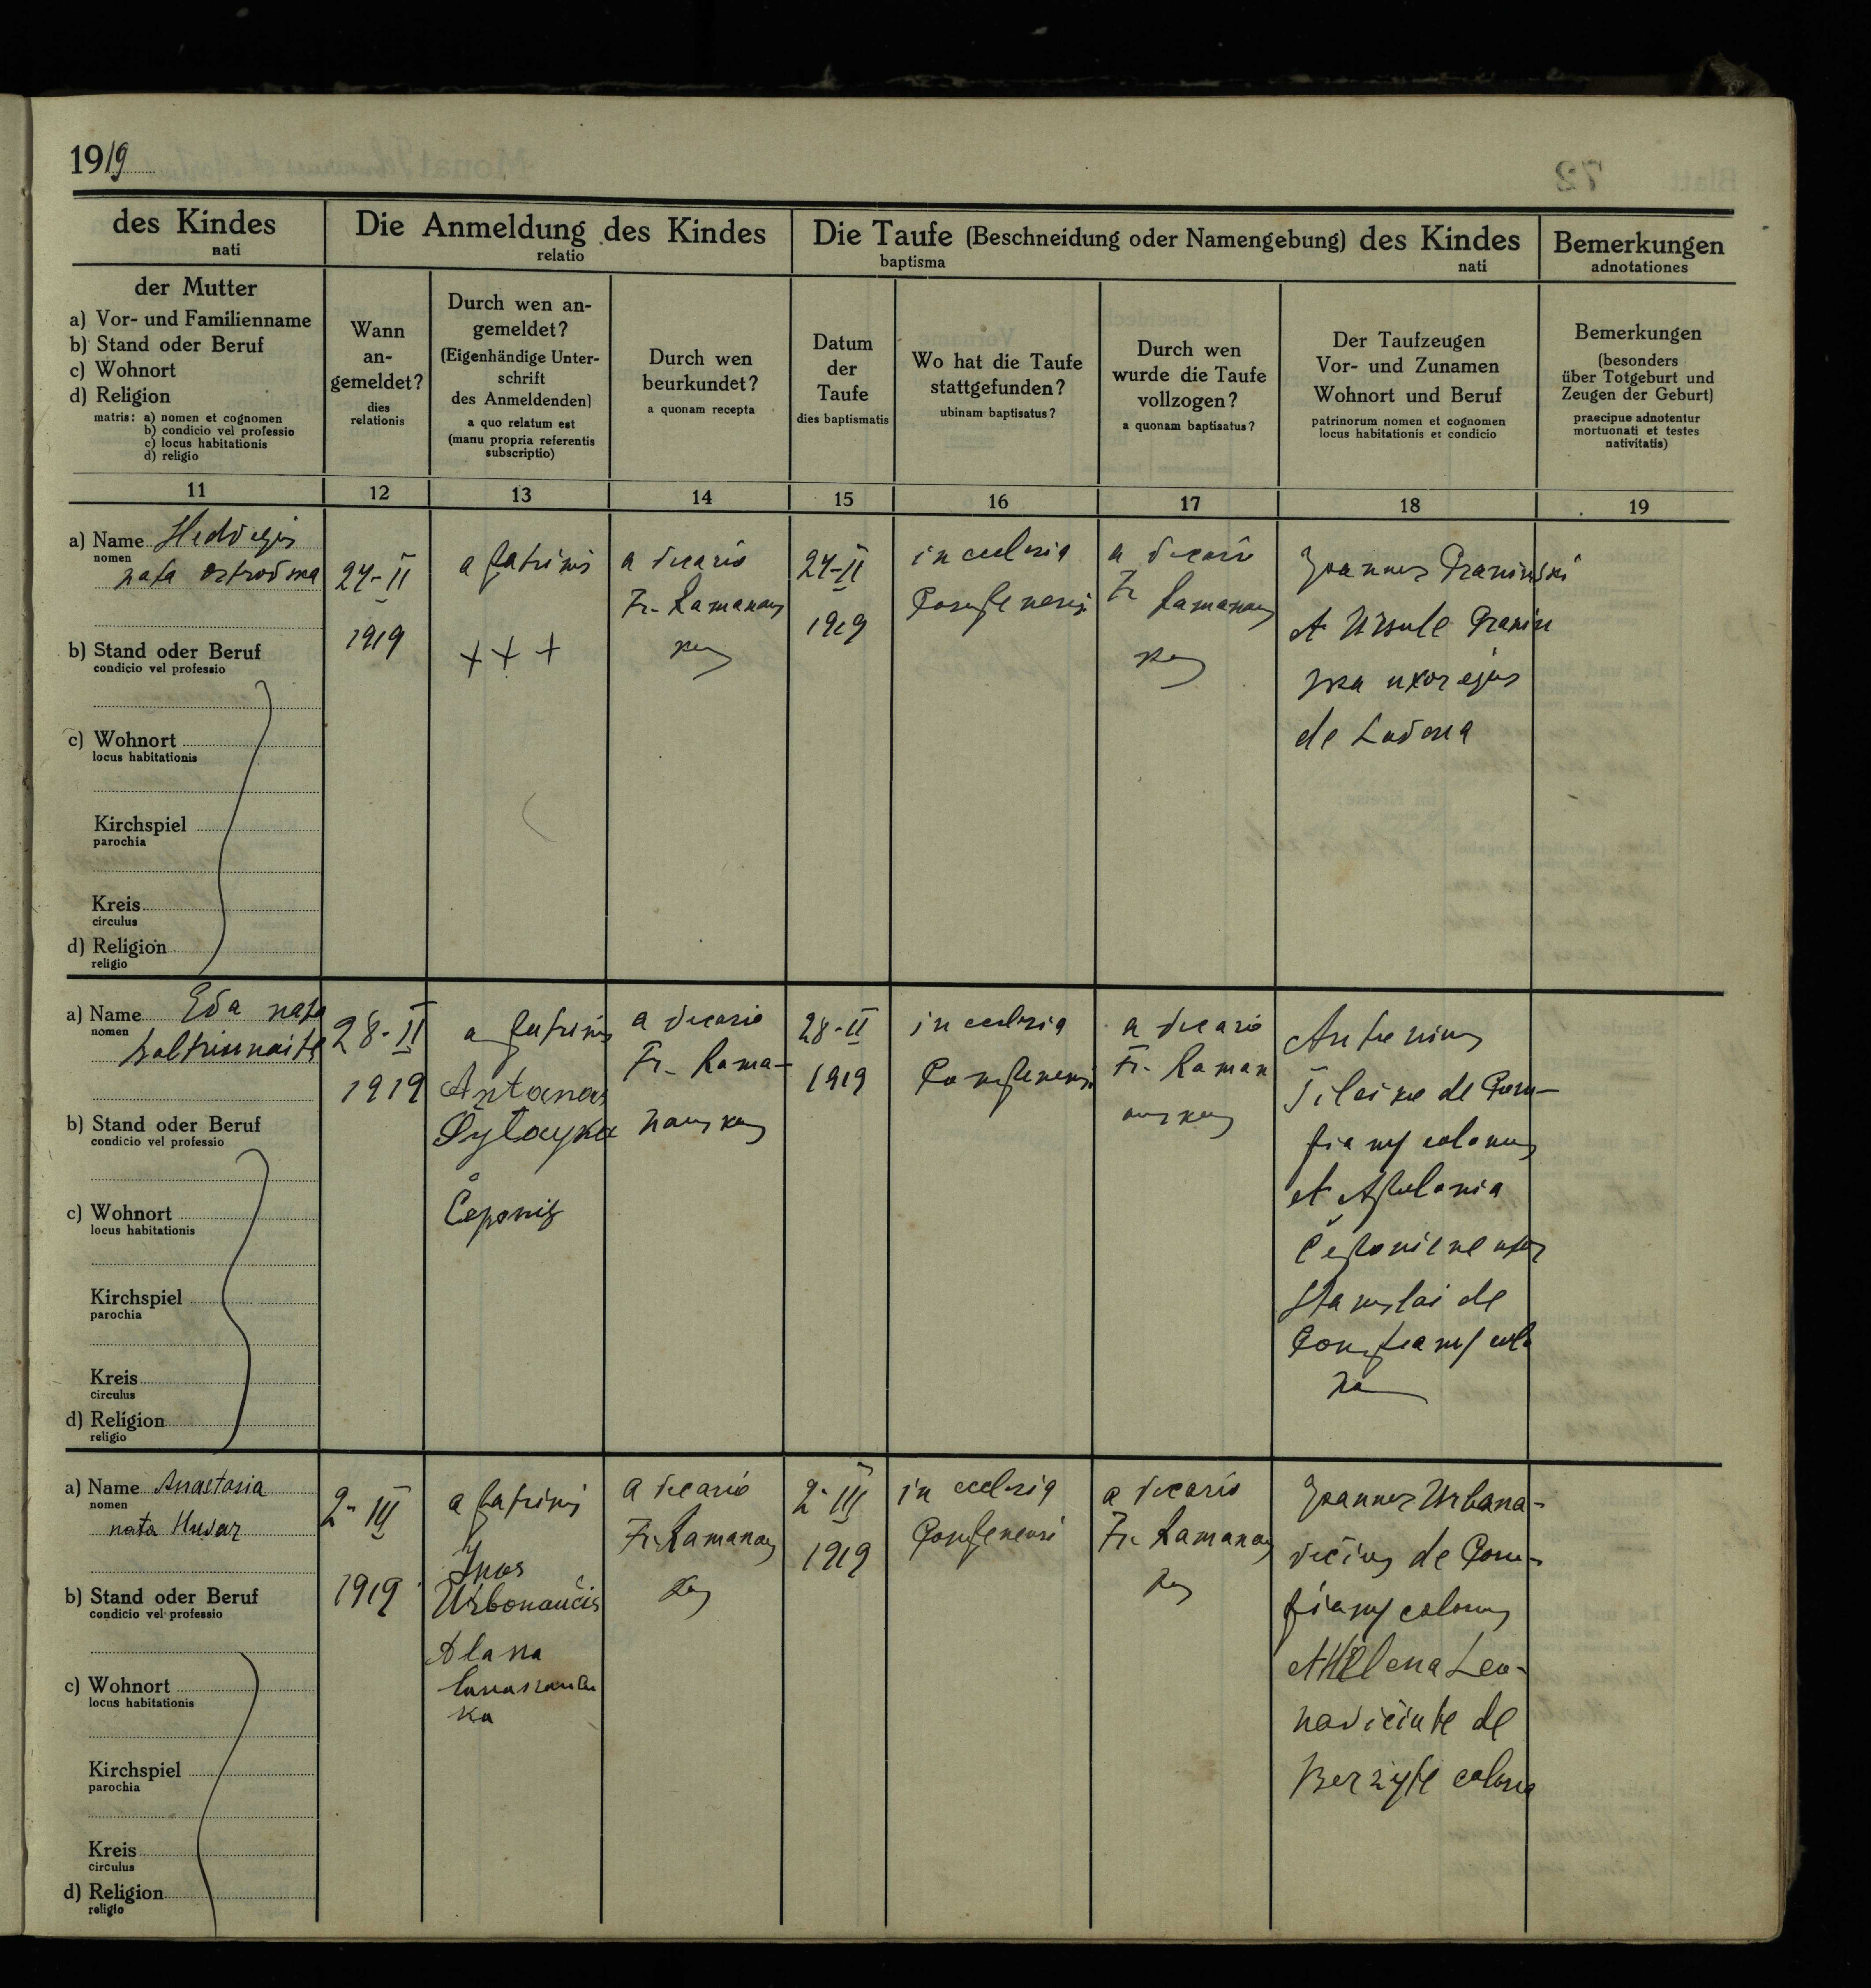 1919
des Kindes
nati
Die Anmeldung des Kindes
relatio
Die Taufe (Beschneidung oder Namengebung) des Kindes
baptisma nati
Bemerkungen
adnotationes
der Mutter
a) Vor- und Familienname
b) Stand oder Beruf
c) Wohnort
d) Religion
matris: a) nomen et cognomen
b) condicio vel professio
c) locus habitationis
d) religio
Wann
an-
gemeldet?
dies
relationis
Durch wen an-
gemeldet?
(Eigenhändige Unter-
schrift
des Anmeldenden)
a quo relatum est
(manu propria referentis
subscriptio)
Durch wen
beurkundet?
a quonam recepta
Datum
der
Taufe
dies baptismatis
Wo hat die Taufe
stattgefunden?
ubinam baptisatus?
Durch wen
wurde die Taufe
vollzogen?
a quonam baptisatus?
Der Taufzeugen
Vor- und Zunamen
Wohnort und Beruf
patrinorum nomen et cognomen
locus habitationis et condicio
Bemerkungen
(besonders
über Totgeburt und
Zeugen der Geburt)
praecipue adnotentur
mortuonati et testes
nativitatis)
11 12 13 14 15 16 17 18 19
a) Name Hedvigis
nomen
nata
b) Stand oder Beruf
condicio vel professio
c) Wohnort
locus habitationis
Kirchspiel
parochia
Kreis
circulus
d) Religion
religio
24-II
1919
a patrinis
+ + +
a vicario
Fr. Ramanaus
kas
24-II
1919
in ecclesia
a vicario
Fr Ramanaus
kas
Joannes Praninski
et Ursule Pranin
ska uxor ejus
de
a) Name Eva nata
nomen
b) Stand oder Beruf
condicio vel professio
c) Wohnort
locus habitationis
Kirchspiel
parochia
Kreis
circulus
d) Religion
religio
28-II
1919
a patrinis
Antanas
Čeponis
a vicario
Fr. Rama-
nauskas
28-II
1919
in ecclesia
a vicario
Fr. Raman
auskas
Antonius
de
colonus
et Apolonia
Čeponiene uxor
Stanislai de
colo
na
a) Name Anastasia
nomen
nata Husar
b) Stand oder Beruf
condicio vel professio
c) Wohnort
locus habitationis
Kirchspiel
parochia
Kreis
circulus
d) Religion
religio
2-III
1919
a patrinis
Urbonaučis
Alana
ka
a vicario
Fr. Ramanaus
kas
2-III
1919
in ecclesia
a vicario
Fr. Ramanaus
kas
Joannes Urbana-
vičius de
colonus
et Helena Leo-
navičiute de
colona